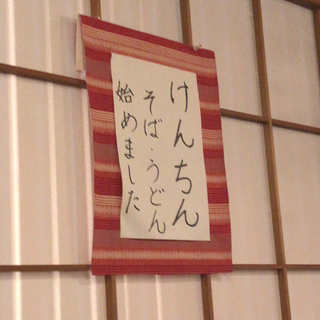 けんちん
そば・うどん
始めました